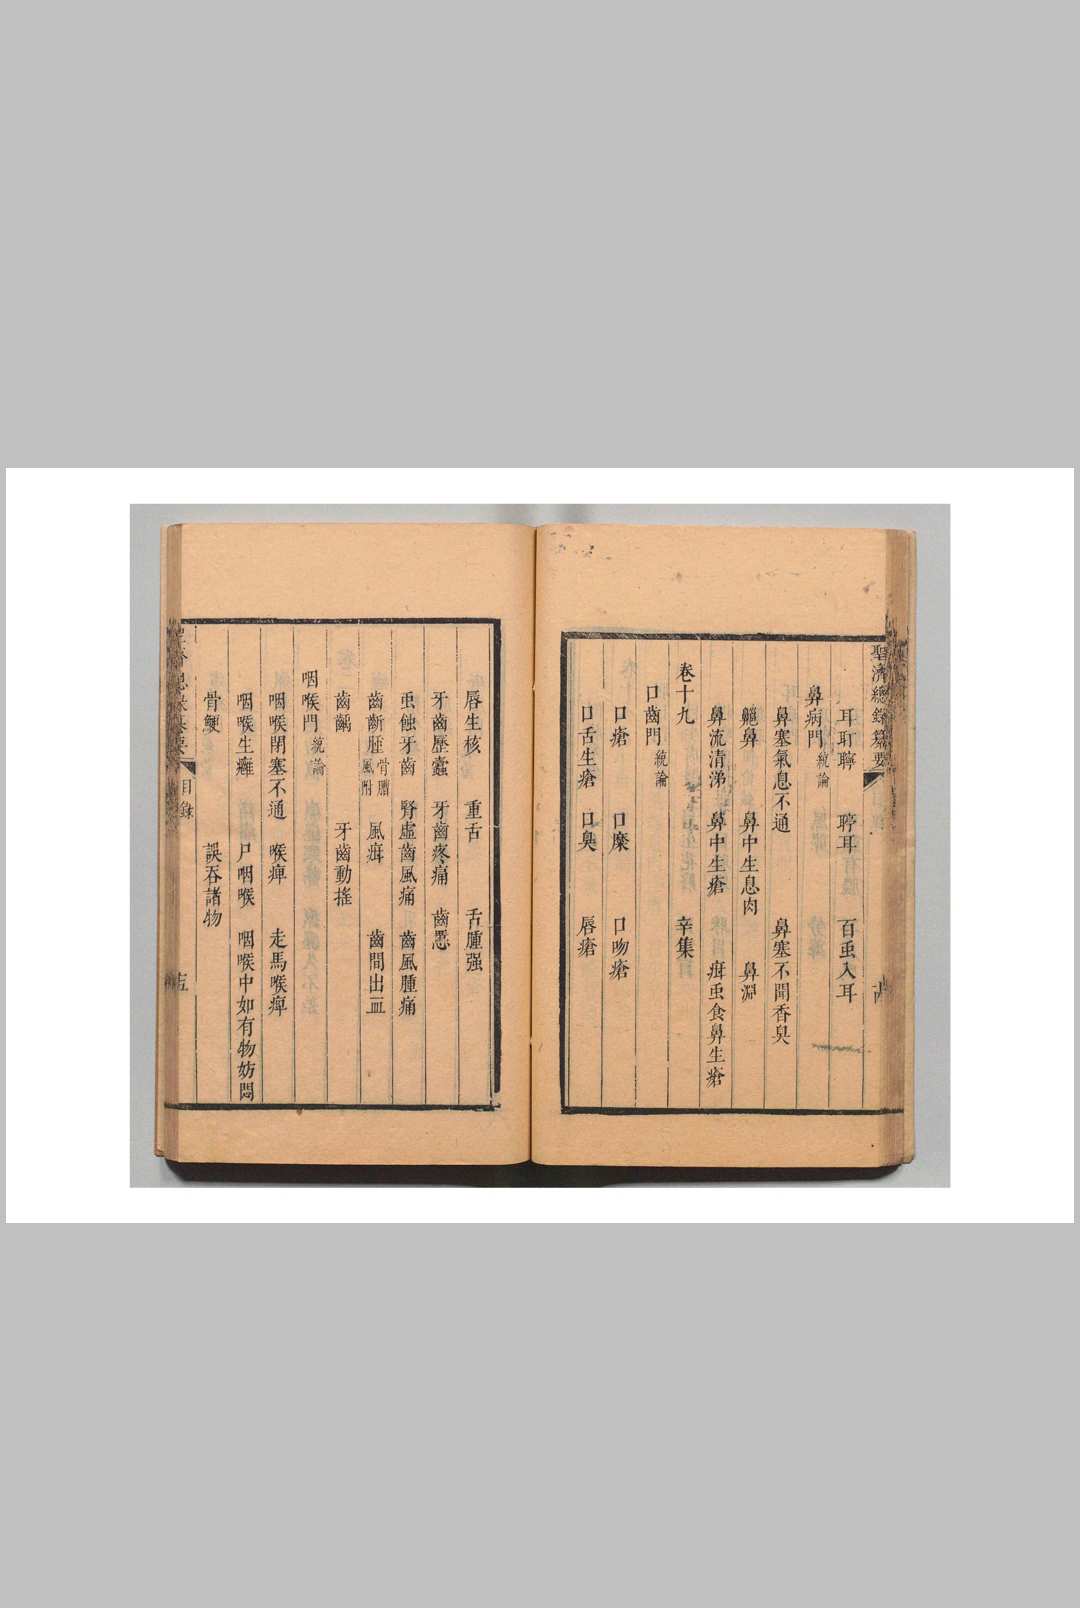 聖濟總錄纂要
目錄
耳耵聹 聤耳 百䖝入耳
鼻病門 統論
鼻塞氣息不通 鼻塞不聞香臭
齆鼻 鼻中生息肉 鼻淵
鼻流清涕 鼻中生瘡 疳䖝食鼻生瘡
卷十九 辛集
口齒門 統論
口瘡 口糜 口吻瘡
口舌生瘡 口臭 唇瘡
唇生核 重舌 舌腫强
牙齒歷蠹 牙齒疼痛 齒𧏾
䖝蝕牙齒 腎虛齒風痛 齒風腫痛
齒齗腫 骨𦠄風附 風疳 齒間出血
齒齲 牙齒動搖
咽喉門 統論
咽喉閉塞不通 喉痺 走馬喉痺
咽喉生癰 尸咽喉 咽喉中如有物妨悶
骨鯁 誤吞諸物
目錄